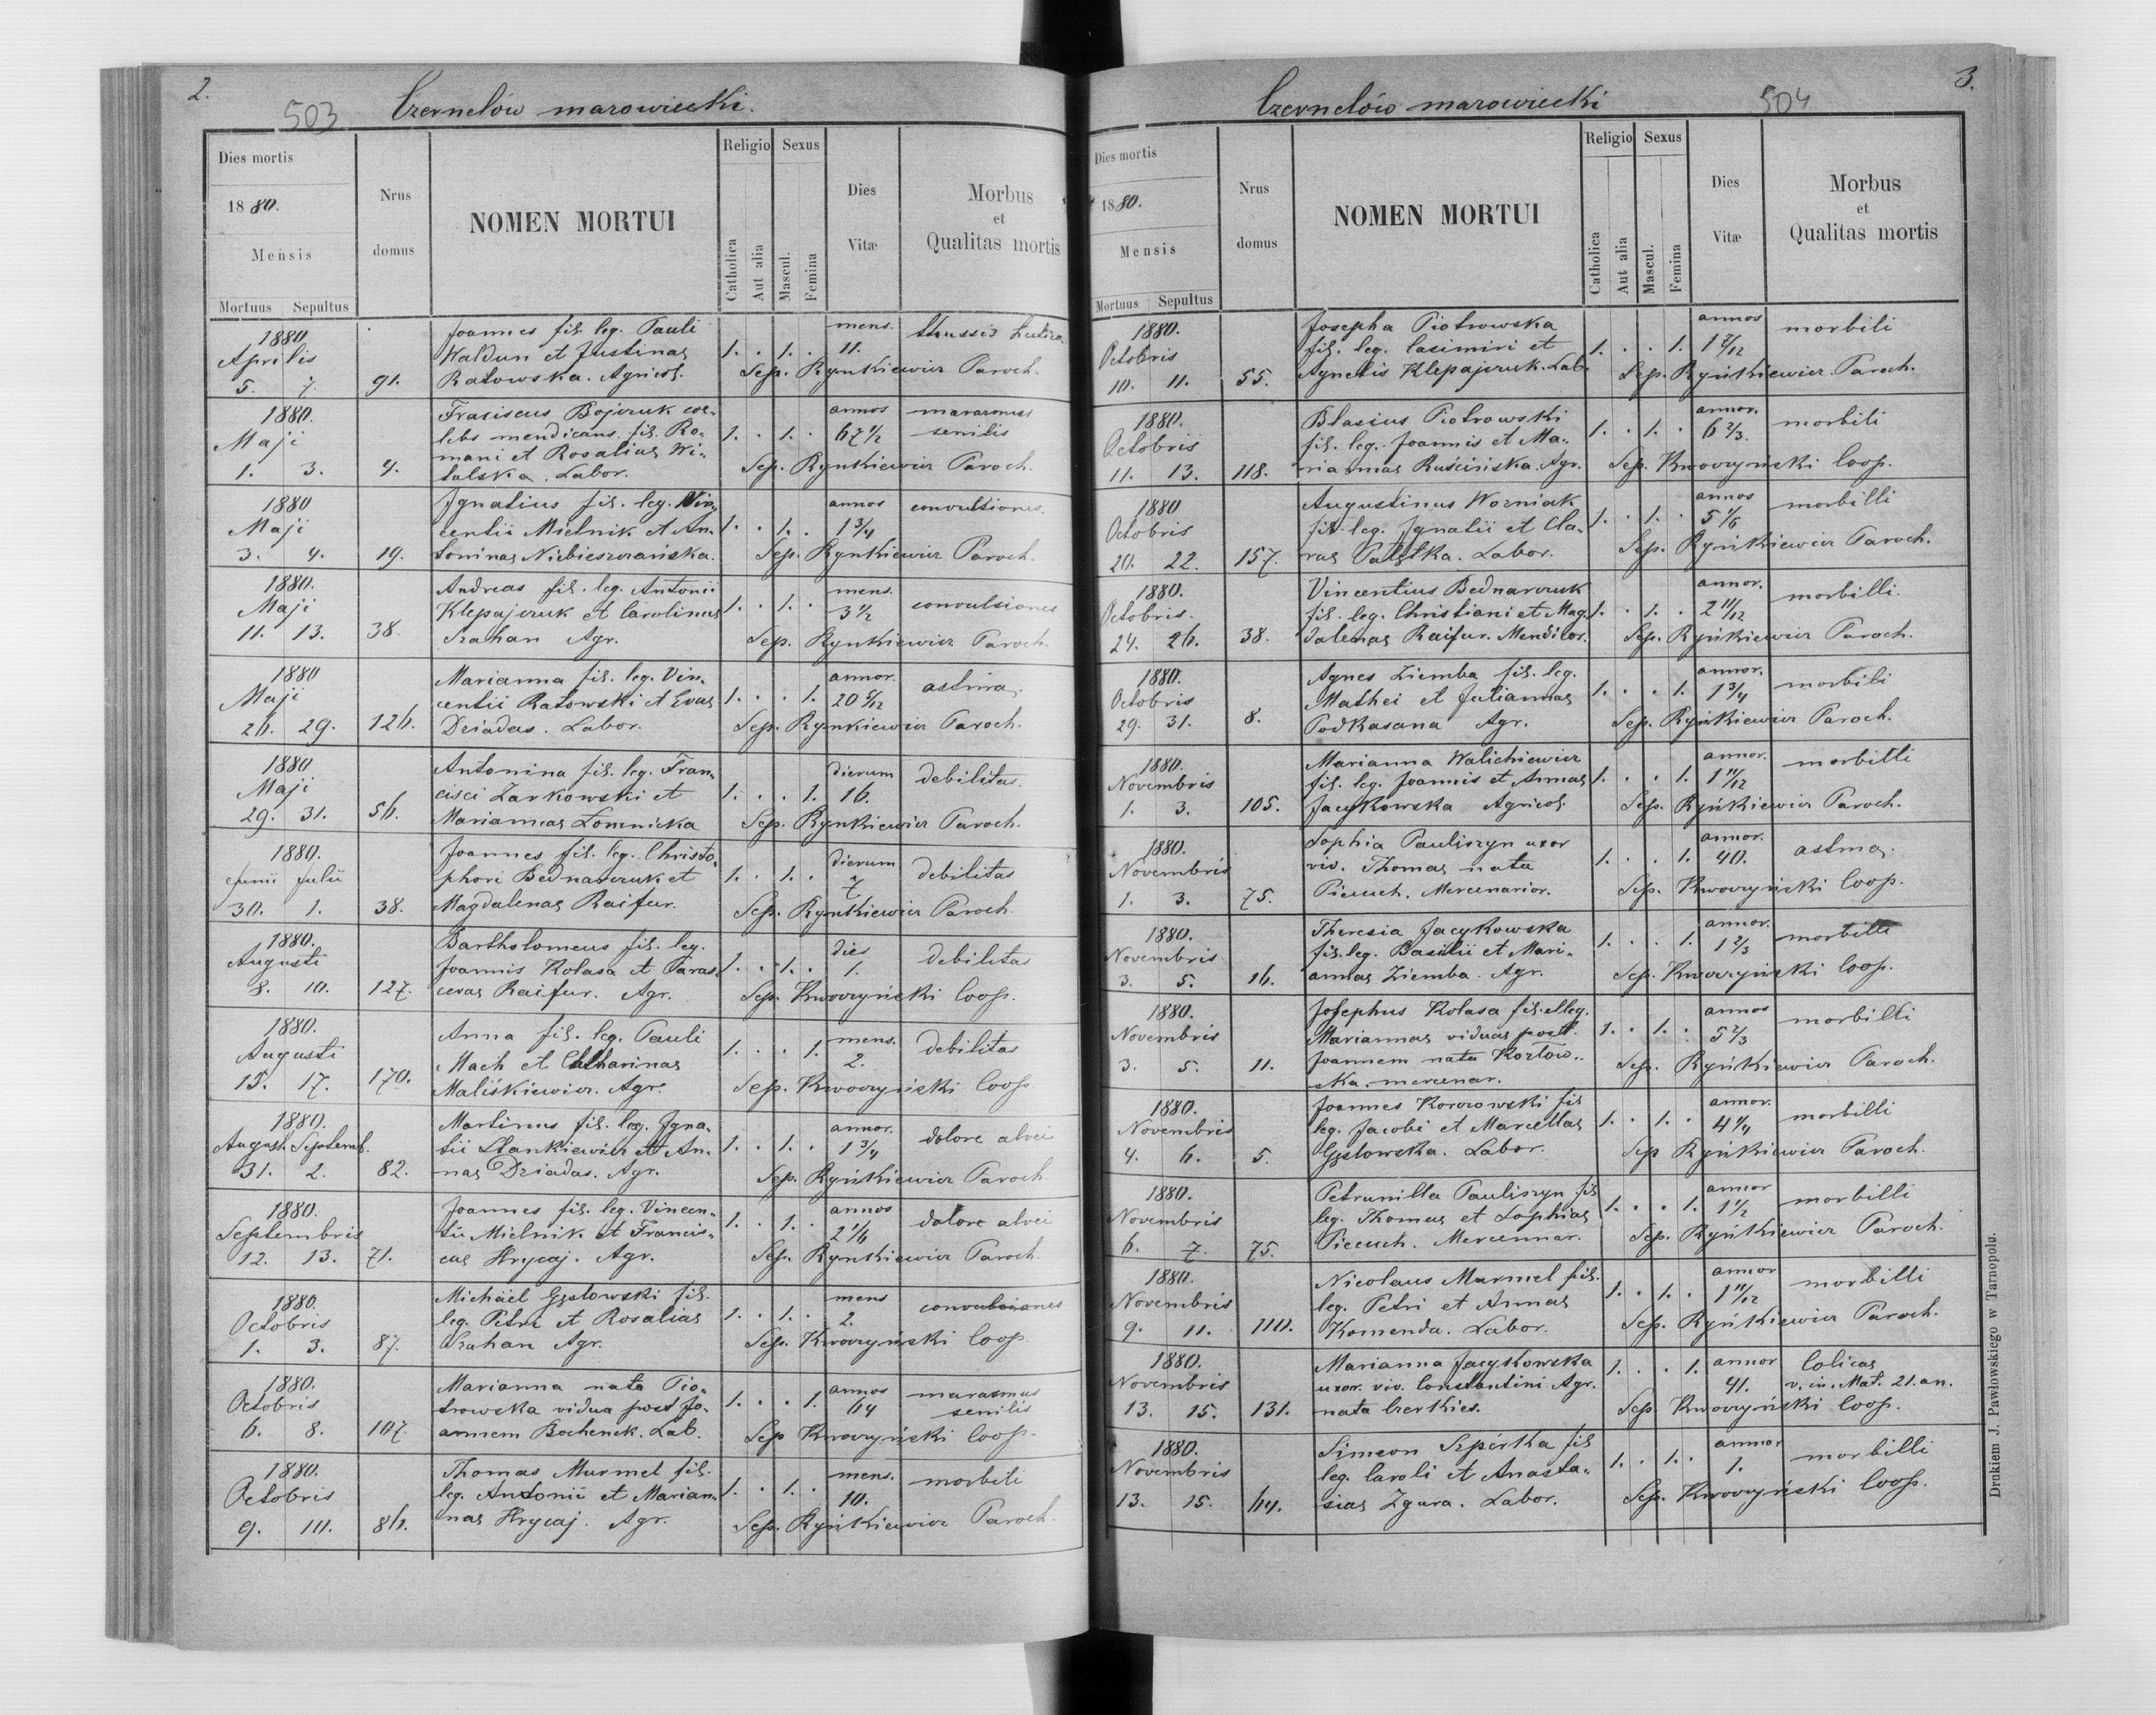 2.
503
Czernelów mazowiecki.
Dies mortis
1880.
Mensis
Mortuus Sepultus
Nrus
domus
NOMEN MORTUI
Religio
Catholica
Aut alia
Sexus
Mascul.
Femina
Dies
Vitæ
Morbus
et
Qualitas mortis
1880 Joannes fil. leg. Pauli mens.
Aprilis Waldun et Justinae 1. . 1. . 11.
5. 7. 91. Ratowska. Agricol. Sep. Rynkiewicz Paroch.
1880. Bojczuk coe- annos marasmus
Maji lebs mendicans fil. Ro- 1. . 1. . 67 1/2 senilis
1. 3. 4. mani et Rosaliae Wi- Sep. Rynkiewicz Paroch.
talska. Labor.
1880 Ignatius fil. leg. Vin- annos convulsiones.
Maji centii Mielnik et An- 1. . 1. . 1 3/4
3. 4. 19. toninae Niebieszczańska. Sep. Rynkiewicz Paroch.
1880. Andreas fil. leg. Antonii mens.
Maji Klepajczuk et Carolinae 1. . 1. . 3 1/2 convulsiones
11. 13. 38. Szahan Agr. Sep. Rynkiewicz Paroch.
1880 Marianna fil. leg. Vin- annor.
Maji centii Ratowski et Evae 1. . . 1. 20 5/12 astma.
26. 29. 126. Dziadas. Labor. Sep. Rynkiewicz Paroch.
1880 Antonina fil. leg. Fran- dierum debilitas.
Maji cisci Zarkowski et 1. . . 1. 16.
29. 31. 56. Mariannae Łomnicka Sep. Rynkiewicz Paroch.
1880. Joannes fil. leg. Christo- dierum
Junii Julii phori Bednarczuk et 1. . 1. . 7 debilitas
30. 1. 38. Magdalenae Raifur. Sep. Rynkiewicz Paroch.
1880. Bartholomeus fil. leg. dies
Augusti Joannis Kolasa et Paras- 1. . 1. . 1. debilitas
8. 10. 127. cevae Raifur. Agr. Sep. Kwoczyński Coop.
1880. Anna fil. leg. Pauli mens.
Augusti Mach et Catharinae 1. . . 1. 2. debilitas
15. 17. 170. Maliśkiewicz. Agr. Sep. Kwoczyński Coop
1880. Martinus fil. leg. Igna- annor.
August. Septemb. tii Stankiewicz et An- 1. . 1. . 1 3/4 dolore alvei
31. 2. 82. nae Dziadas. Agr. Sep. Ryńkiewicz Paroch.
1880. Joannes fil. leg. Vincen- annos
Septembris tii Mielnik et Francis- 1. . 1. . 2 1/6 dolore alvei
12. 13. 71. cae Hrycaj. Agr. Sep. Rynkiewicz Paroch.
1880. Michäel Gęslowski fil. mens
Octobris leg. Petri et Rosaliae 1. . 1. . 2. convulsiones
1. 3. 87. Szahan Agr. Sep. Kwoczyński Coop
1880. Marianna nata Pio- annos marasmus
Octobris trowska vidua post Jo- 1. . . 1. 64 senilis
6. 8. 107. annem Bochenek. Lab. Sep Kwoczyński Coop.
1880. Thomas Murmel fil. mens. morbili
Octobris leg. Antonii et Marian- 1. . 1. . 10.
9. 10. 86. nae Hrycaj. Agr. Sep. Ryńkiewicz Paroch.
3.
504
Czernelów mazowiecki
Dies mortis
1880.
Mensis
Mortuus Sepultus
Nrus
domus
NOMEN MORTUI
Religio
Catholica
Aut alia
Sexus
Mascul.
Femina
Dies
Vitæ
Morbus
et
Qualitas mortis
1880. Josepha Piotrowska annos morbili
Octobris fil. leg. Casimiri et 1. . . 1.
10. 11. 55. Agnetis Klepajczuk. Lab. Sep. Ryńkiewicz. Paroch.
1880. Blasius Piotrowski annor. morbili
Octobris fil. leg. Joannis et Ma- 1. . 1. . 6 2/3.
11. 13. 118. riannae Ruścińska. Agr. Sep. Kwoczyński Coop.
1880 Augustinus Wozniak annos morbilli
Octobris fil. leg. Ignatii et Cla- 1. . 1. . 5 1/6
20. 22. 157. rae Labor. Sep. Ryńkiewicz Paroch.
1880. Vincentius Bednarczuk annor. morbilli.
Octobris. fil. leg. Christiani et Mag- 1. . 1. . 2 11/12
24. 26. 38. dalenae Raifur. Mendicor. Sep. Ryńkiewicz Paroch.
1880. Agnes Ziemba fil. leg. annor.
Octobris Mathei et Juliannae 1. . . 1. 1 3/4 morbili
29. 31. 8. Podkasana Agr. Sep. Ryńkiewicz Paroch.
1880. Marianna Walichiewicz annor. morbilli
Novembris fil. leg. Joannis et Annae 1. . . 1. 1 11/12
1. 3. 105. Jacykowska Agricol. Sep. Ryńkiewicz Paroch.
1880. Sophia Pauliszyn uxor annor. astma.
Novembris viv. Thomae nata 1. . . 1. 40.
1. 3. 75. Piecuch. Mercenarior. Sep. Kwoczyński Coop.
1880. Theresia Jacykowska annor. morbilli
Novembris fil. leg. Basilii et Mari- 1. . . 1. 1 2/3
3. 5. 16. annae Ziemba. Agr. Sep. Kwoczyński Coop.
1880. Josephus Kolasa fil. illeg. annos morbilli
Novembris Mariannae viduae post 1. . 1. . 5 2/3
3. 5. 11. Joannem nata Kozłow- Sep. Ryńkiewicz Paroch.
ska. mercenar.
1880. Joannes fil annor. morbilli
Novembris leg. Jacobi et Marcellae 1. . 1. . 4 1/4
4. 6. 5. Gęslowska. Labor. Sep Ryńkiewicz Paroch.
1880. Petrunilla Pauliszyn fil annor morbilli
Novembris leg. Thomae et Sophiae 1. . . 1. 1 1/2
6. 7. 75. Piecuch. Mercennar. Sep. Ryńkiewicz Paroch.
1880. Nicolaus Murmel fil. annor morbilli
Novembris leg. Petri et Annae 1. . 1. . 1 11/12
9. 11. 110. Komenda. Labor. Sep. Ryńkiewicz Paroch.
1880. Marianna Jacykowska 1. . . 1. annor Colicae
Novembris uxor. viv. Constantini Agr. 41. v. in. Mat. 21. an.
13. 15. 131. nata Czerkies. Sep Kwoczyński Coop.
1880. Simeon Szpirka fil annor morbilli
Novembris leg. Caroli et Anasta- 1. . 1. . 1.
13. 15. 64. siae Zgura. Labor. Sep. Kwoczyński Coop.
Drukiem J. Pawłowskiego w Tarnopolu.